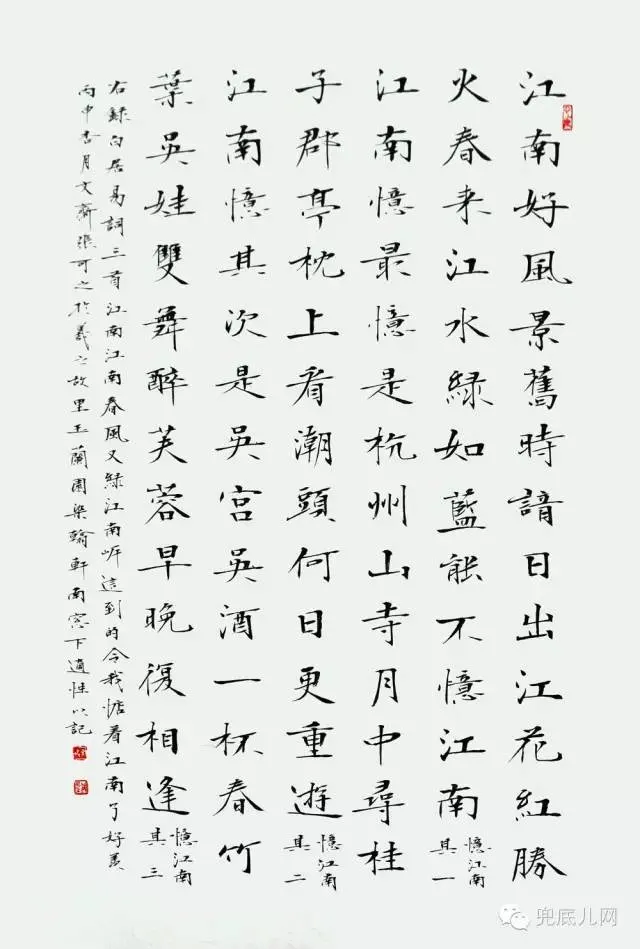 江南好風景舊時諳日出江花紅勝
火春来江水綠如藍能不憶江南
憶江南
其一
江南憶最憶是杭州山寺月中尋桂
子郡亭枕上看潮頭何日更重遊
憶江南
其二
江南憶其次是吳宮吳酒一杯春竹
葉吳娃雙舞醉芙蓉早晚復相逢
憶江南
其三
右錄白居易詞三首江南江南春風又綠江南岸這到的令我惦看江南了好美
丙申杏月文齋張可之於羲之故里王蘭園樂翰軒南窓下適性以記
兜底儿网